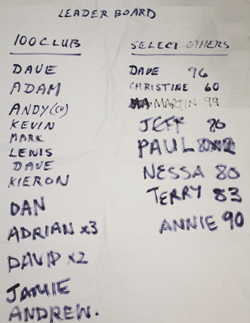 LEADER BOARD
100 CLUB
DAVE
ADAM
ANDY (CH)
KEVIN
MARK
LEWIS
DAVE
KIERON
DAN
ADRIAN x3
DAVID x2
JAMIE
ANDREW.
SELECT OTHERS
DAVE 96
CHRISTINE 60
MARTIN 99
JEFF 80
PAUL
NESSA 80
TERRY 83
ANNIE 90